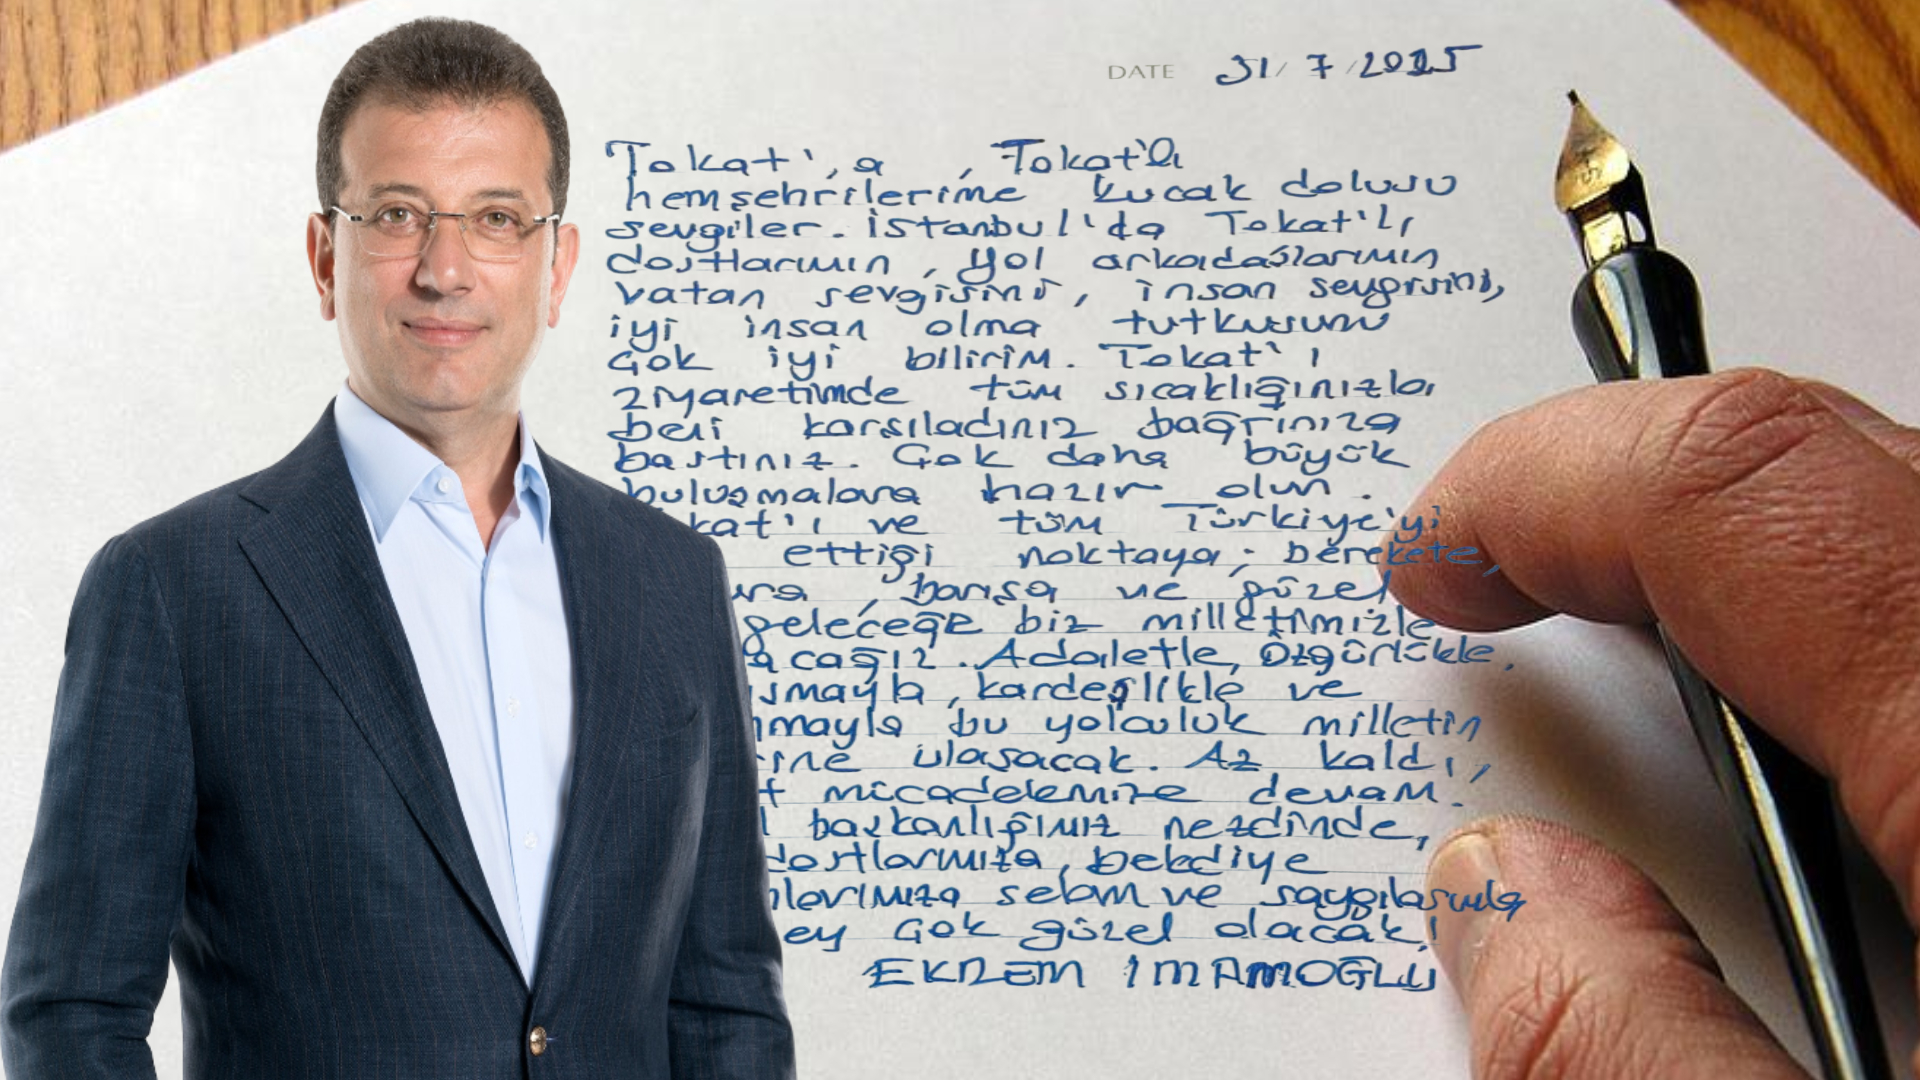 DATE 31/7/2025
Tokat'a, Tokat'lı
hemşehrilerime kucak dolusu
sevgiler. İstanbul'da Tokat'lı
dostlarımın, yol arkadaşlarımın
vatan sevgisini, insan sevgisini,
iyi insan olma tutkusunu
Çok iyi bilirim. Tokat'ı
ziyaretimde tüm sıcaklığınızla
beni karşıladınız bağrınıza
bastınız. Çok daha büyük
buluşmalara hazır olun.
kat'ı ve tüm Türkiye'yi
ettiği noktaya; berekete,
ura, barışa ve güzel
geleceğe biz milletimizle
acağız. Adaletle, Özgürlükle,
ışmayla, kardeşlikle ve
nmayla bu yolculuk milletin
rine ulaşacak. Az kaldı,
t mücadelemize devam.
l başkanlığımız nezdinde,
dostlarımıza, belediye
nlerimize selam ve saygılarımla
ey Çok güzel olacak!
EKREM İMAMOĞLU